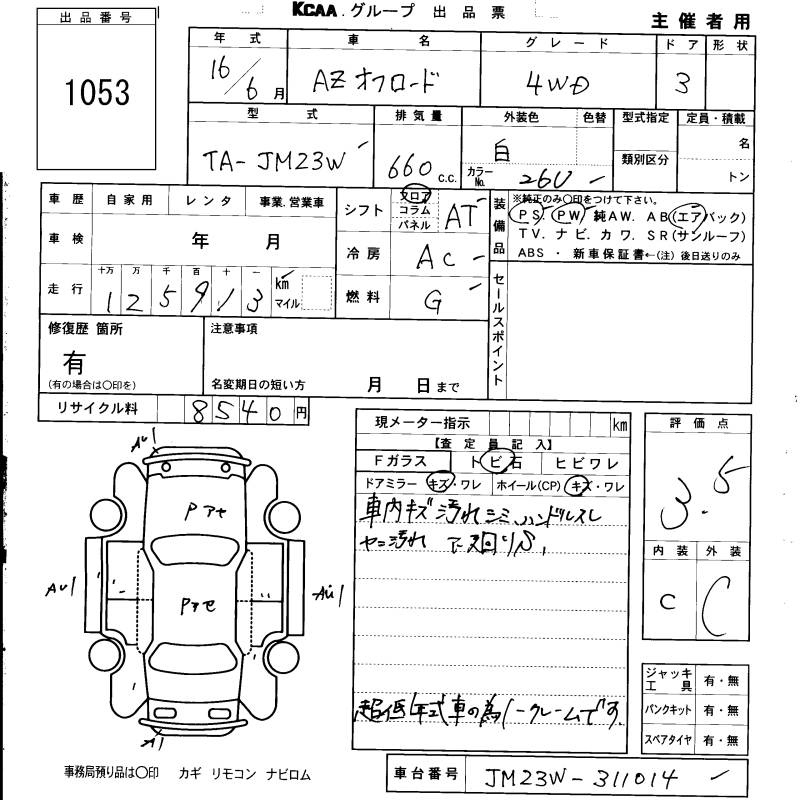 KCAA グループ 出品票
主催者用
出品番号
1053
年式 車名 グレード ドア 形状
16/6月 AZオフロード 4WD 3
型式 排気量 外装色 色替 型式指定 定員・積載
TA-JM23W 660 c.c. 白 カラーNo. 26U 類別区分 名 トン
車歴 自家用 レンタ 事業.営業車
車検 年 月
十万 万 千 百 十 一
走行 125913 km マイル
シフト フロア コラム パネル AT
冷房 AC
燃料 G
装備品 ※純正のみ〇印をつけて下さい。
PS. PW 純AW. AB(エアバック)
TV. ナビ. カワ. SR(サンルーフ)
ABS ・ 新車保証書←(注)後日送りのみ
セールスポイント
修復歴 箇所
有
(有の場合は〇印を)
注意事項
名変期日の短い方 月 日まで
リサイクル料 8540円
現メーター指示 km
【査定員記入】
Fガラス トビ石 ヒビワレ
ドアミラー キズ・ワレ ホイール(CP) キズ・ワレ
車内キズ汚れシミ ハンドルスレ
ヤニ汚れ
超低年式車の為ノークレームです.
評価点
3.5
内装 外装
C C
ジャッキ 工具 有・無
パンクキット 有・無
スペアタイヤ 有・無
AU1
Pアセ
AU1
Pアセ
AU1
A1
事務局預り品は〇印 カギ リモコン ナビロム
車台番号 JM23W-311014